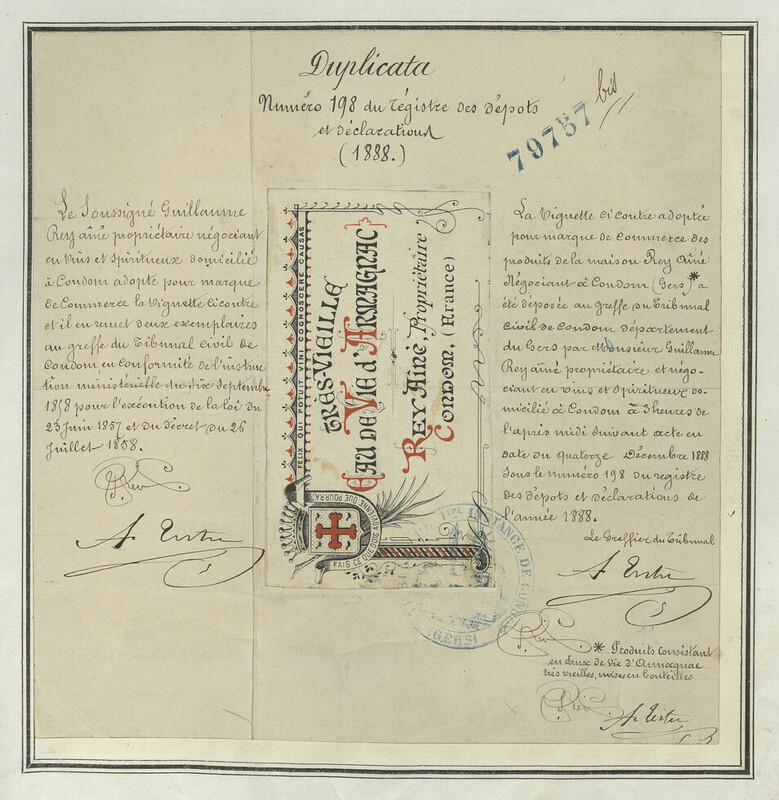 Duplicata
Numéro 198 du régistre des dépots
et déclarations
(1888.)
79757 bis
Le Soussigné Guillaume
Rey aîné propriétaire négociant
en Vins et Spiritueux domicilié
à Condom adopte pour marque
de Commerce la Vignette Ci contre
et il en remet deux exemplaires
au greffe du Tribunal civil de
Condom en conformité de l'instruc
tion ministérielle du Six Septembre
1858 pour l'exécution de la loi du
23 Juin 1857 et du Décret du 26
Juillet 1858.
G. Rey
FELIX QUI POTUIT VINI COGNOSCERE CAUSAS
TRÈS-VIEILLE
EAU DE VIE d'ARMAGNAC
REY Aîné, Propriétaire
CONDOM, (France)
FAIS CE QUE DOIS ADVIENNE QUE POURRA
1ERE INSTANCE DE COND
(GERS)
La Vignette ci contre adoptée
pour marque de Commerce des
produits de la maison Rey Aîné
Négociant à Condom (Gers)* a
été déposée au greffe du Tribunal
civil de Condom département
du Gers par Monsieur Guillaume
Rey aîné propriétaire et négo-
ciant en vins et Spiritueux do-
micilié à Condom à 3 heures de
l'après midi suivant acte en
date du quatorze Décembre 1888
sous le numéro 198 du registre
des dépots et déclarations de
l'année 1888.
Le Greffier du Tribunal
* Produits Consistant
en Eaux de Vie d'Armagnac
très vieilles, mises en bouteilles